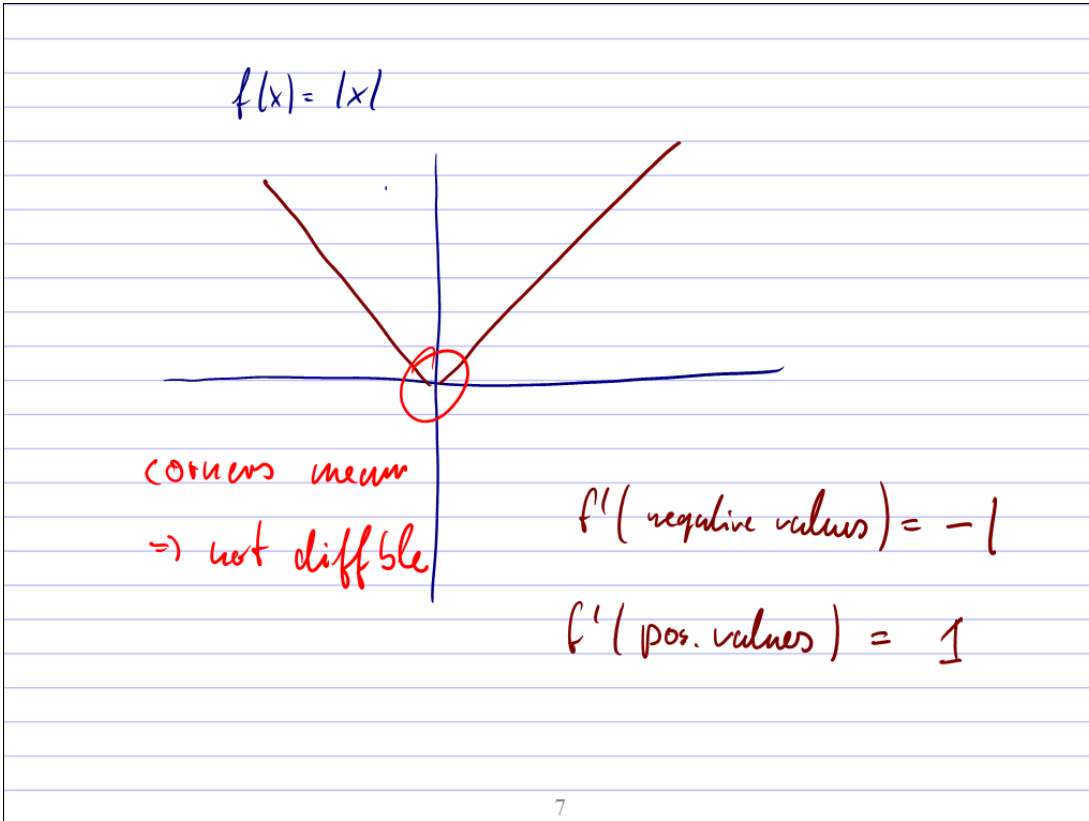 f(x) = |x|
corners mean
=> not diffble
f'( negative values ) = -1
f'( pos. values ) = 1
7